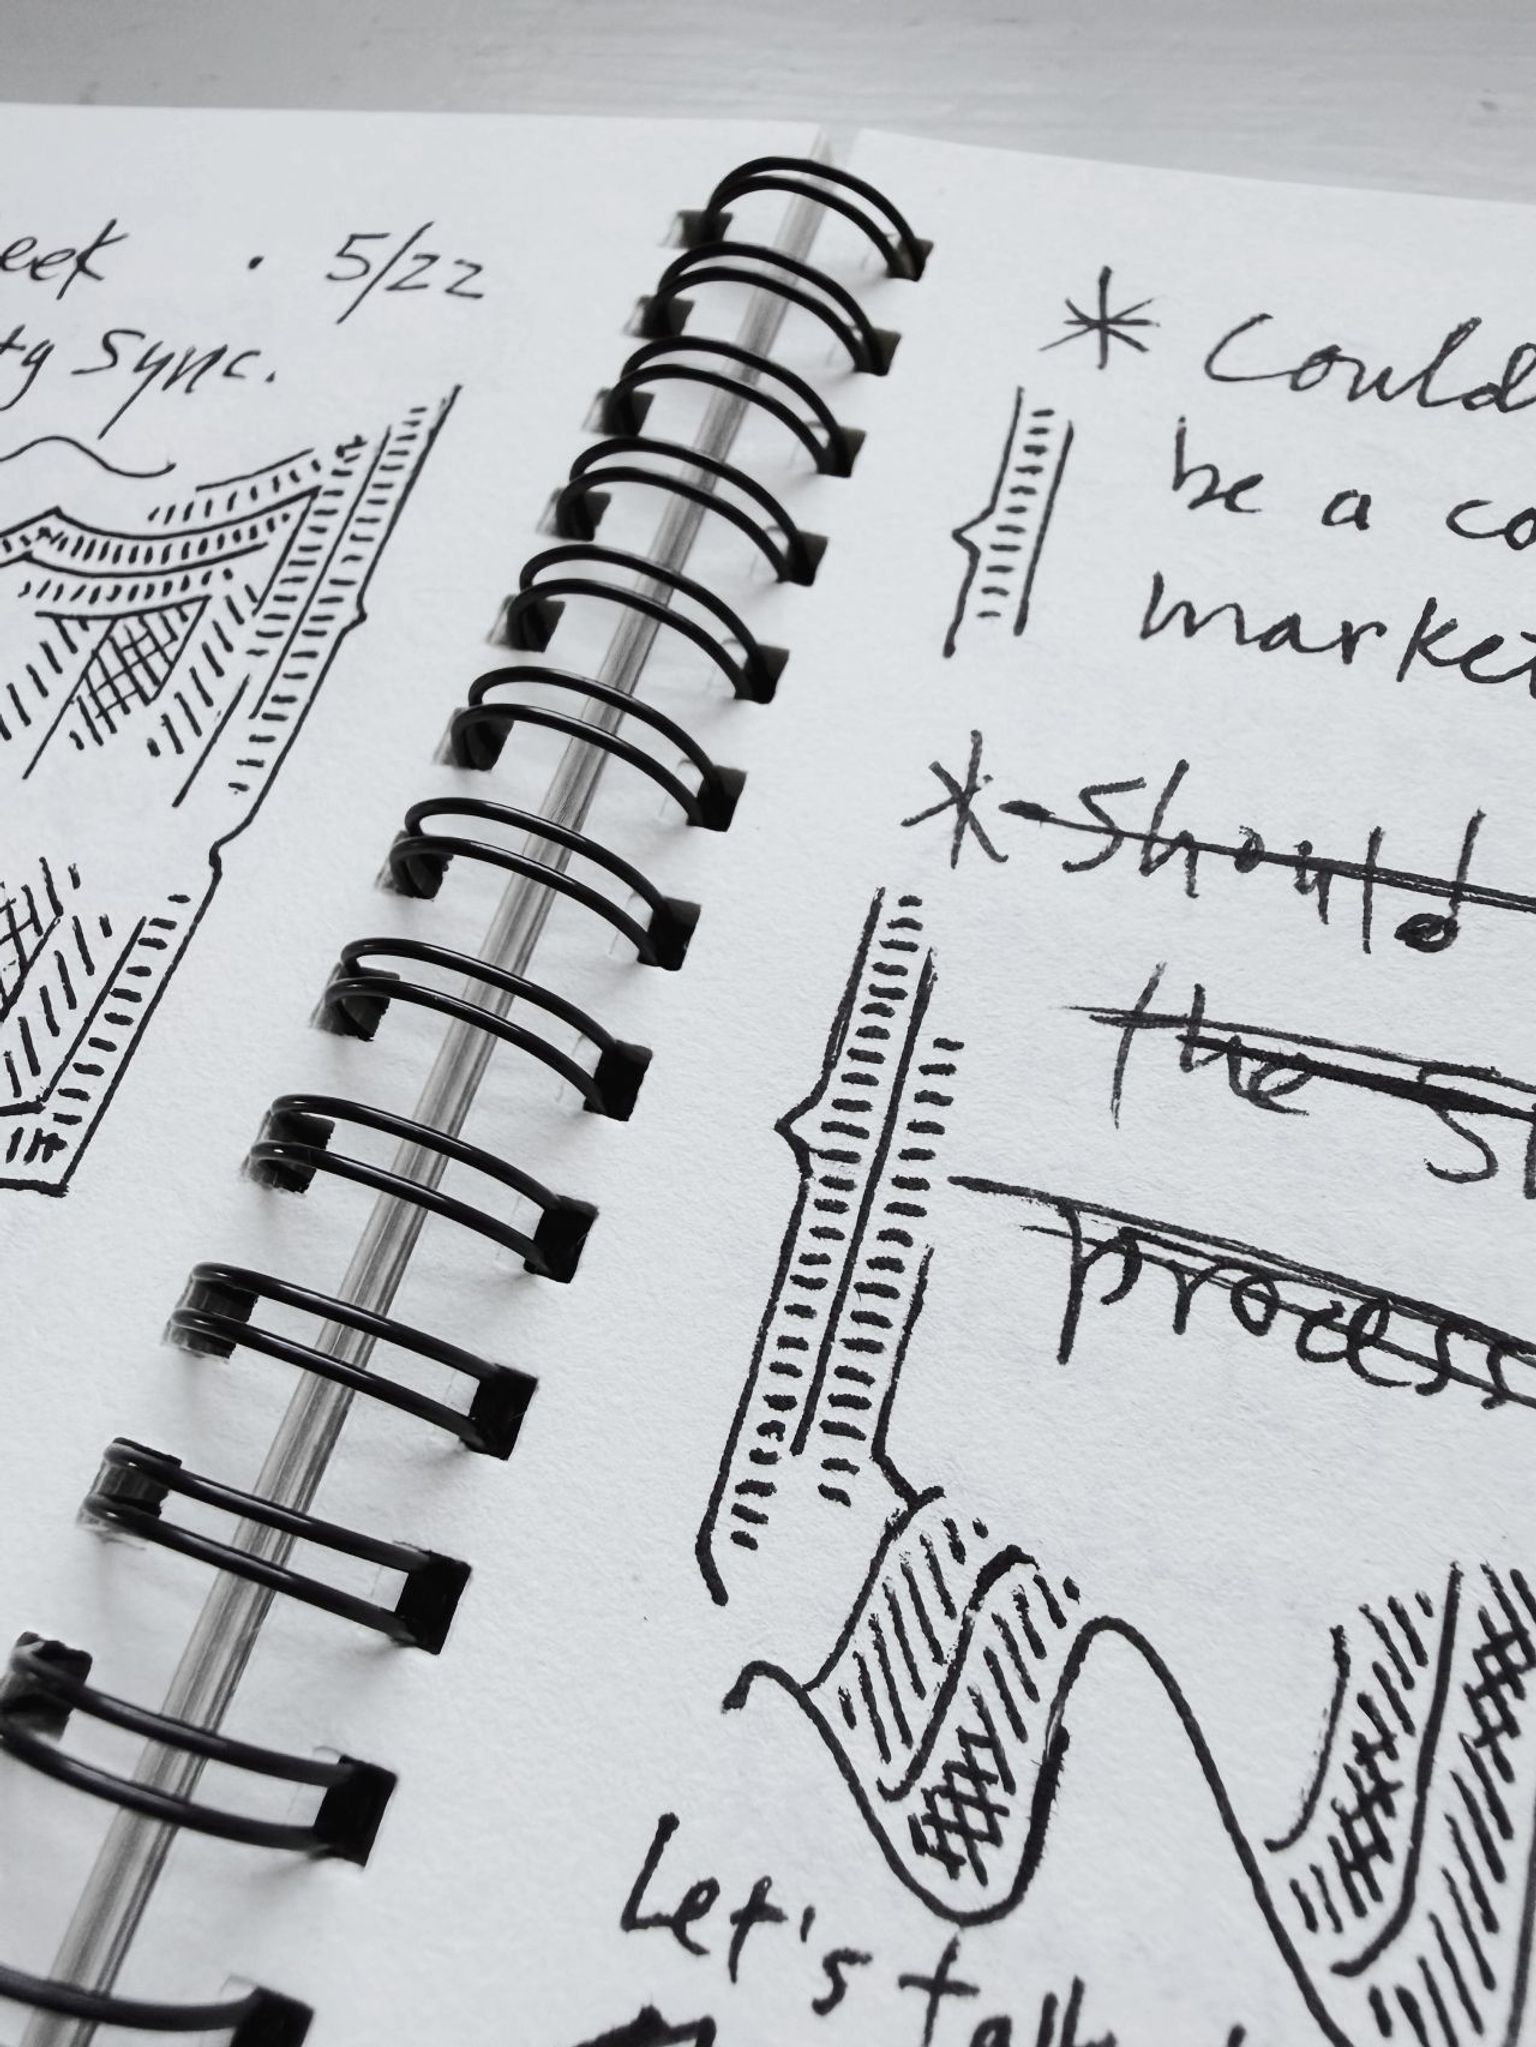 eek · 5/22
ty Sync.
* Could
be a co
market
* Should
the S
process
Let's talk